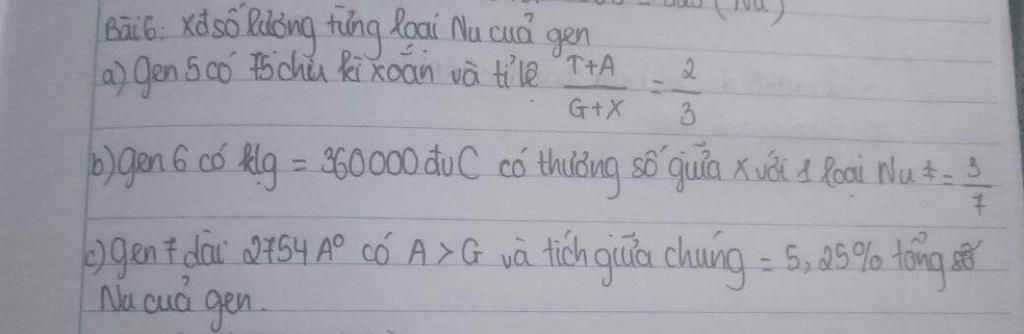 Bài 6: Xđ số lượng từng loại Nu của gen
a) gen 5 có 75 chu kì xoắn và tỉ lệ T+A / G+X = 2 / 3
b) gen 6 có klg = 360000 đvC có thương số giữa X với 1 loại Nu ≠ = 3 / 7
c) gen 7 dài 2754 A° có A > G và tích giữa chúng = 5,25% tổng số
Nu của gen.